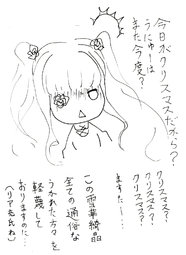 今日がクリスマスだから?
うにゅーは
また今度?
クリスマス?
クリスマス?
クリスマス?
ますたー…
この雪華綺晶
全ての通俗な
うかれた方々を
軽蔑して
おりますのに…
(リア充氏ね)